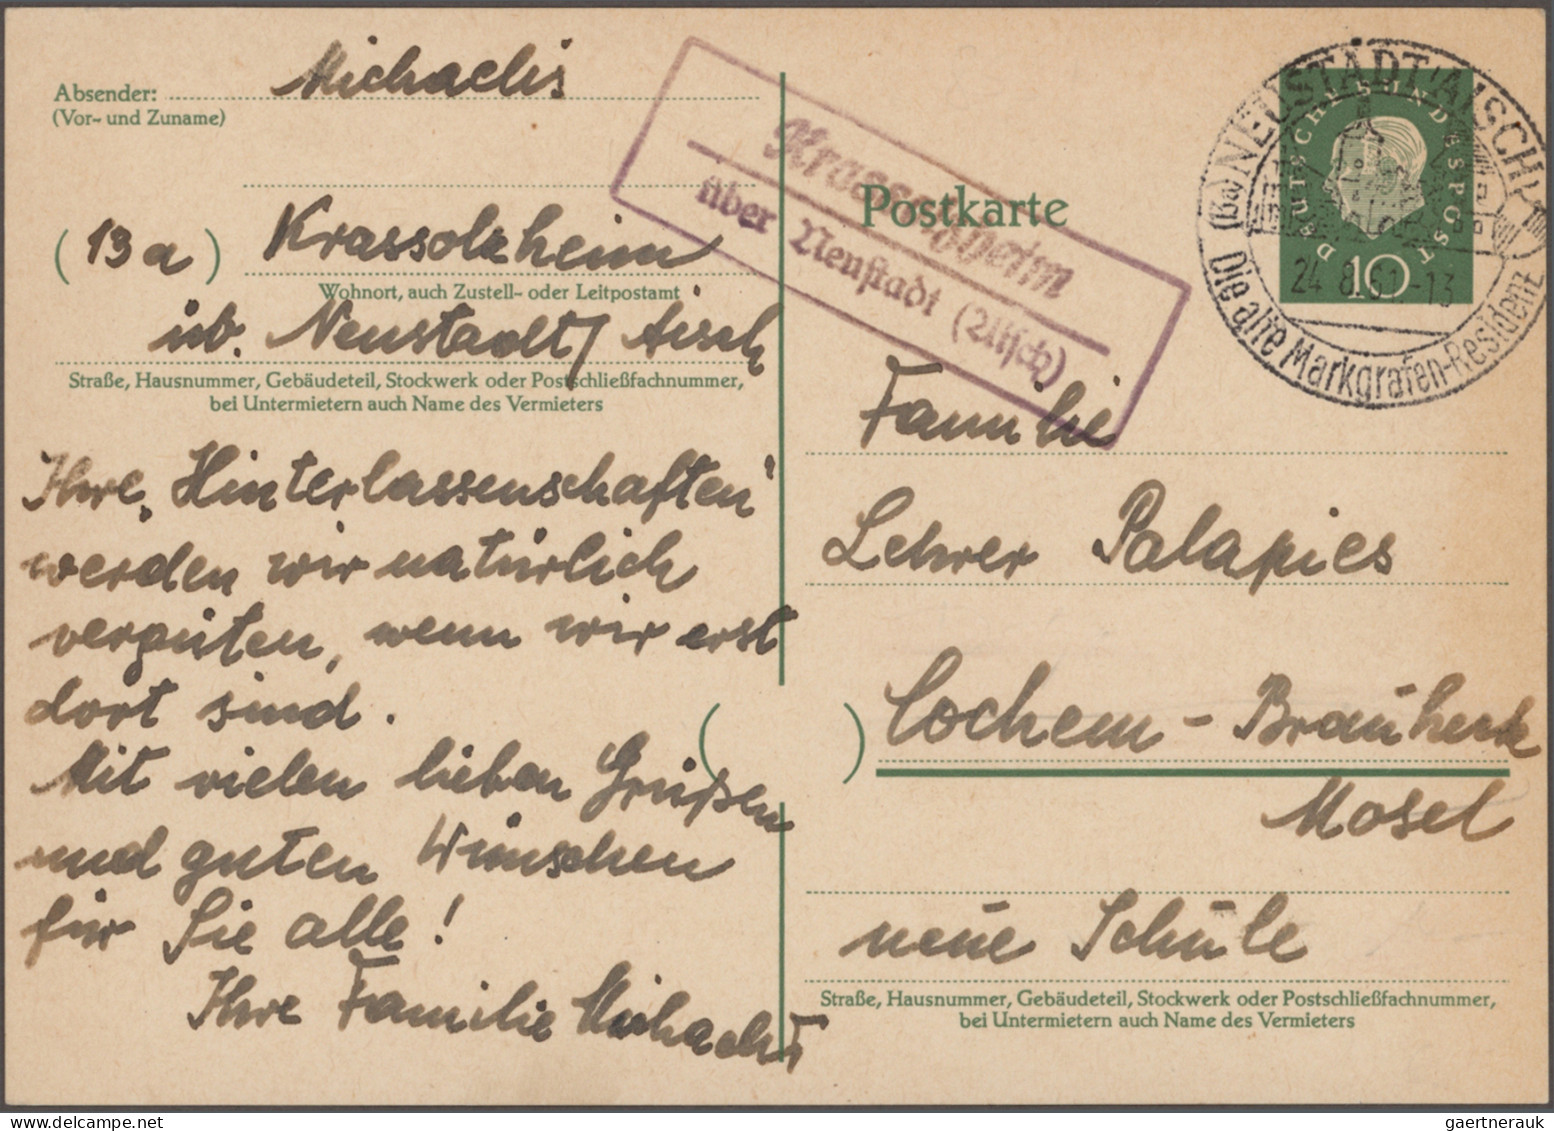 Absender: Michaelis
(Vor- und Zuname)
(13a) Krassolzheim
Wohnort, auch Zustell- oder Leitpostamt
üb. Neustadt/Aisch
Straße, Hausnummer, Gebäudeteil, Stockwerk oder Postschließfachnummer,
bei Untermietern auch Name des Vermieters
Ihre „Hinterlassenschaften“
werden wir natürlich
vergüten, wenn wir erst
dort sind.
Mit vielen lieben Grüßen
und guten Wünschen
für Sie alle!
Ihre Familie Michaelis
Krassolzheim
über Neustadt (Aisch)
Postkarte
DEUTSCHE BUNDESPOST
10
(13a) NEUSTADT (AISCH)
24.8.61-13
Die alte Markgrafen-Residenz
Familie
Lehrer Palapies
Cochem - Brauheck
Mosel
neue Schule
Straße, Hausnummer, Gebäudeteil, Stockwerk oder Postschließfachnummer,
bei Untermietern auch Name des Vermieters
gaertnerauk